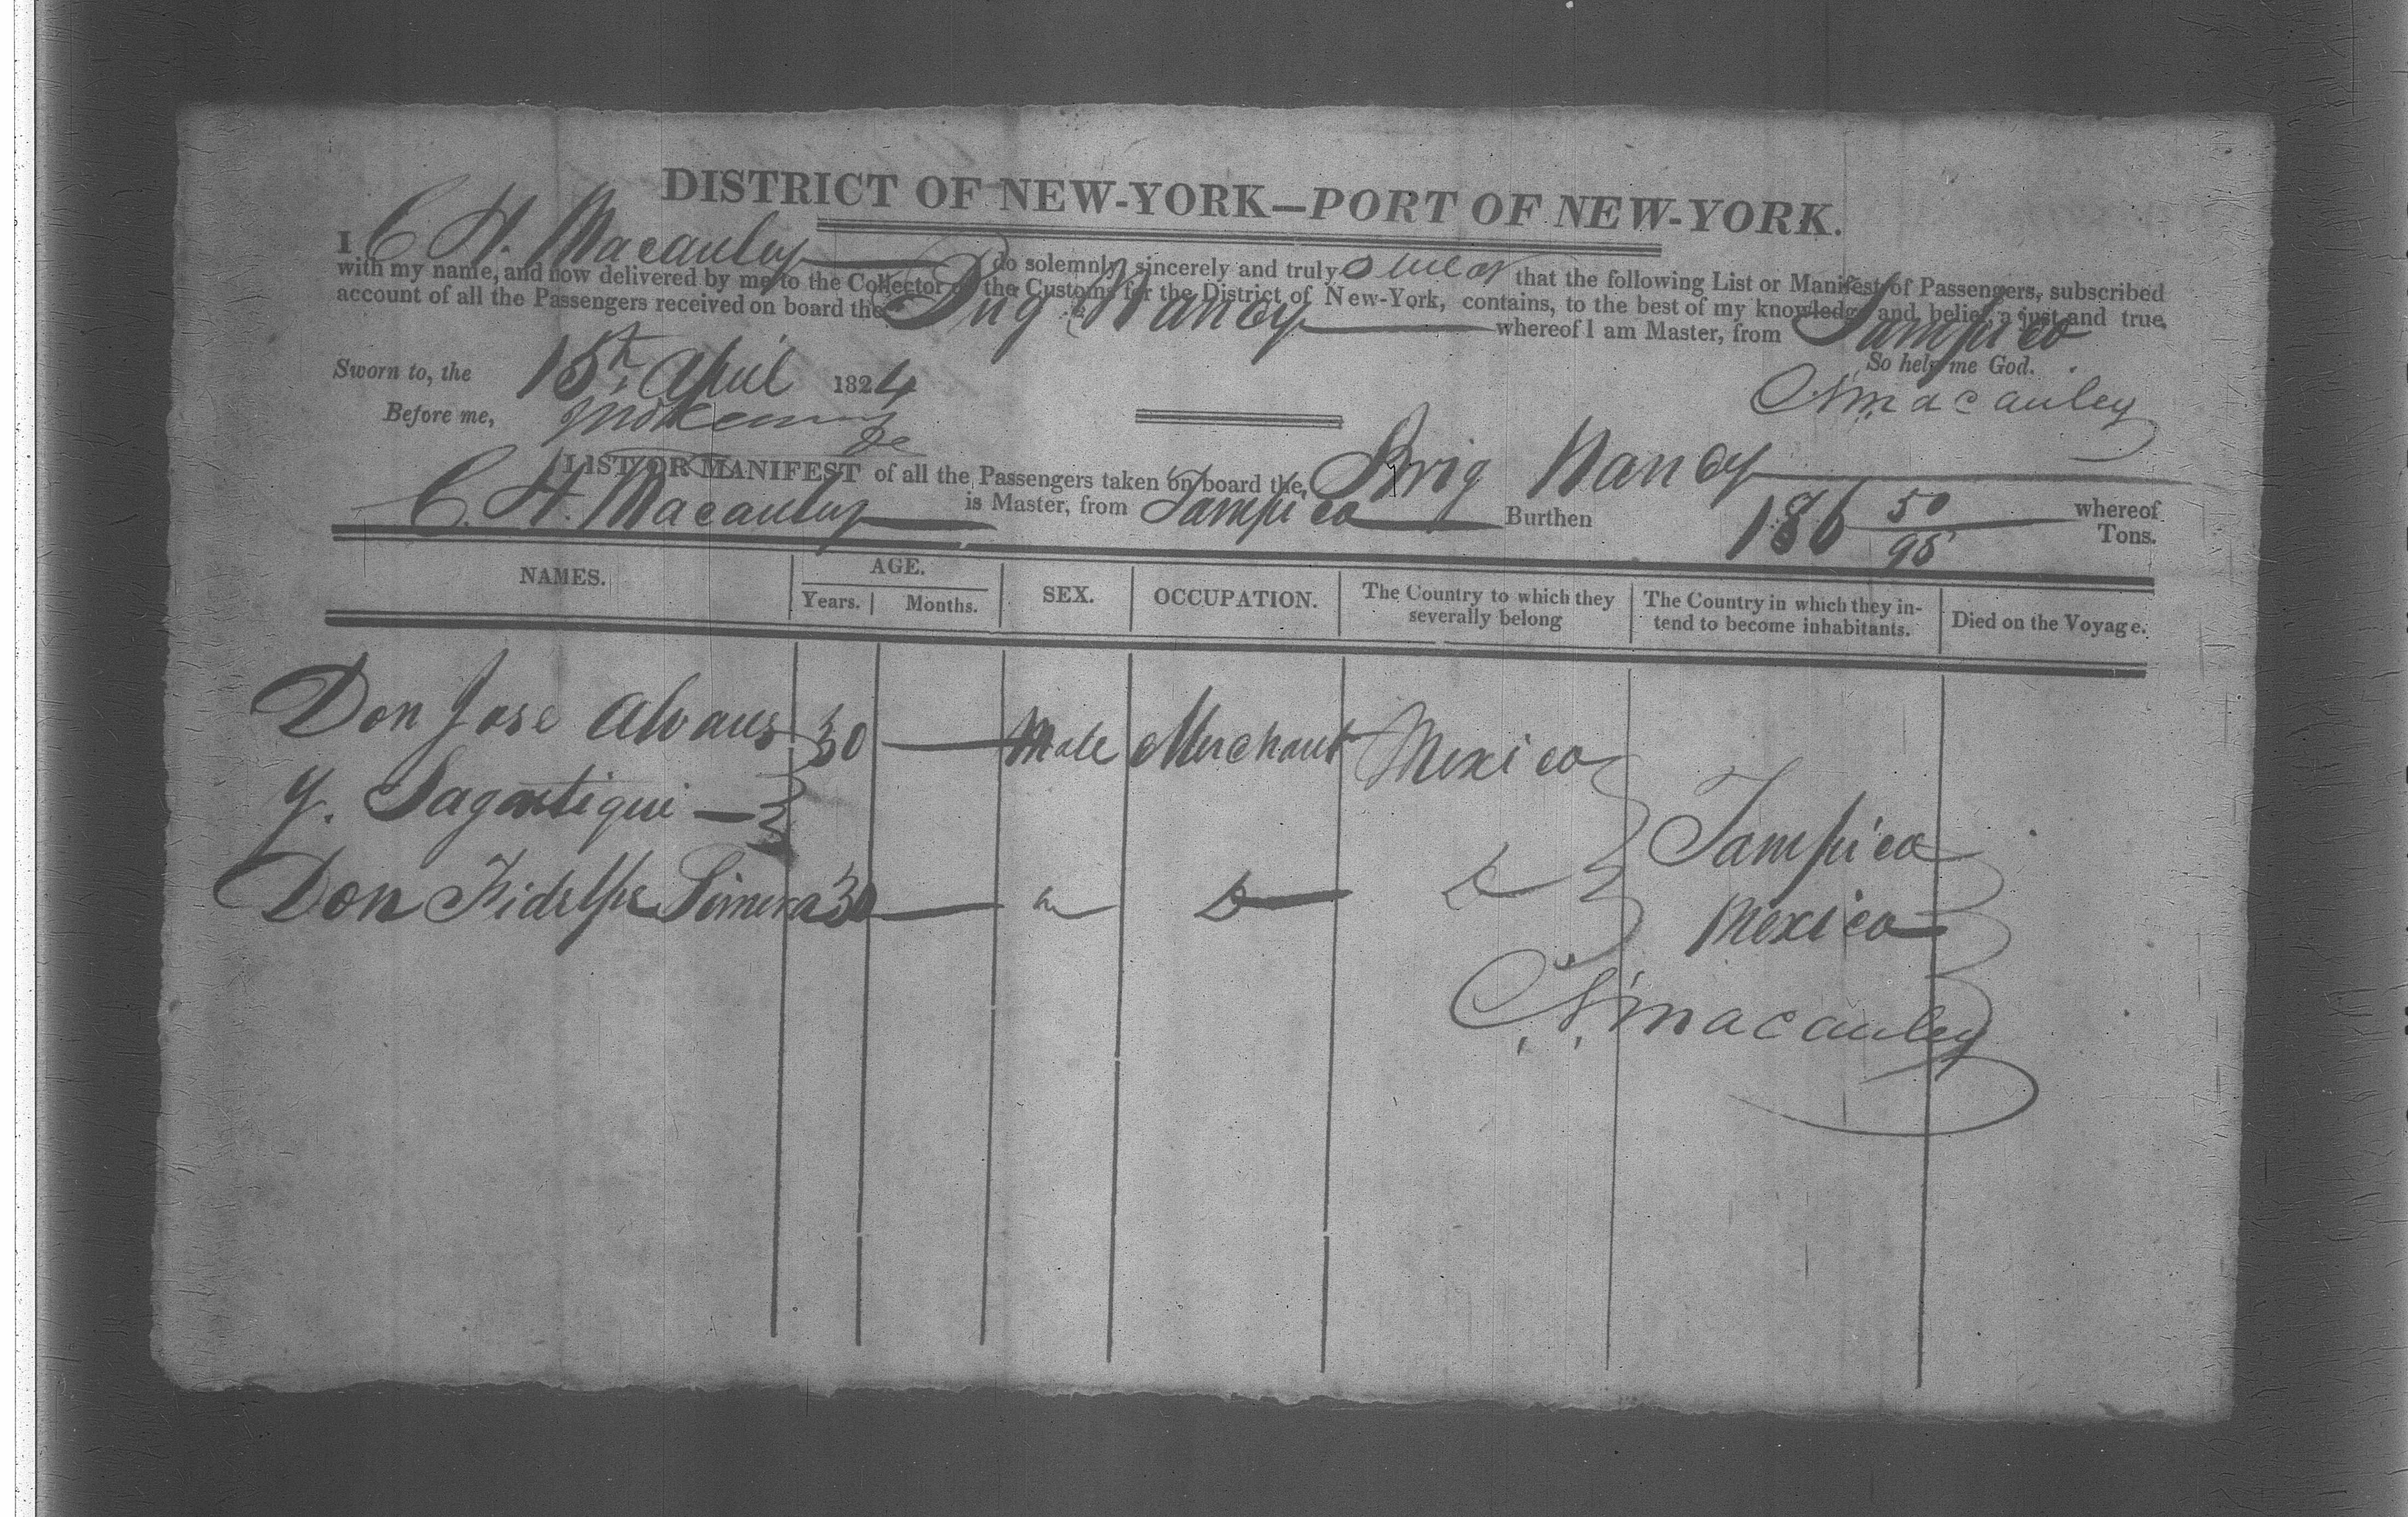 DISTRICT OF NEW-YORK—PORT OF NEW-YORK.
I C H. Macauley do solemnly, sincerely and truly swear that the following List or Manifest of Passengers, subscribed
with my name, and now delivered by me to the Collector of the Customs for the District of New-York, contains, to the best of my knowledge and belief, a just and true
account of all the Passengers received on board the Brig Nancy whereof I am Master, from Tampico
So help me God.
Sworn to, the 15th April 1824
C H Macauley
Before me,
LIST OR MANIFEST of all the Passengers taken on board the Brig Nancy whereof
C. H. Macauley is Master, from Tampico Burthen 186 50/95 Tons.
NAMES. AGE. SEX. OCCUPATION. The Country to which they severally belong The Country in which they intend to become inhabitants. Died on the Voyage.
Years. Months.
Don Jose Alvaus 30 — Male Merchant Mexico
y. Sagartiqui —
Tampico
Don Fidelpe Simena 30 —
Mexico
C. H. Macauley